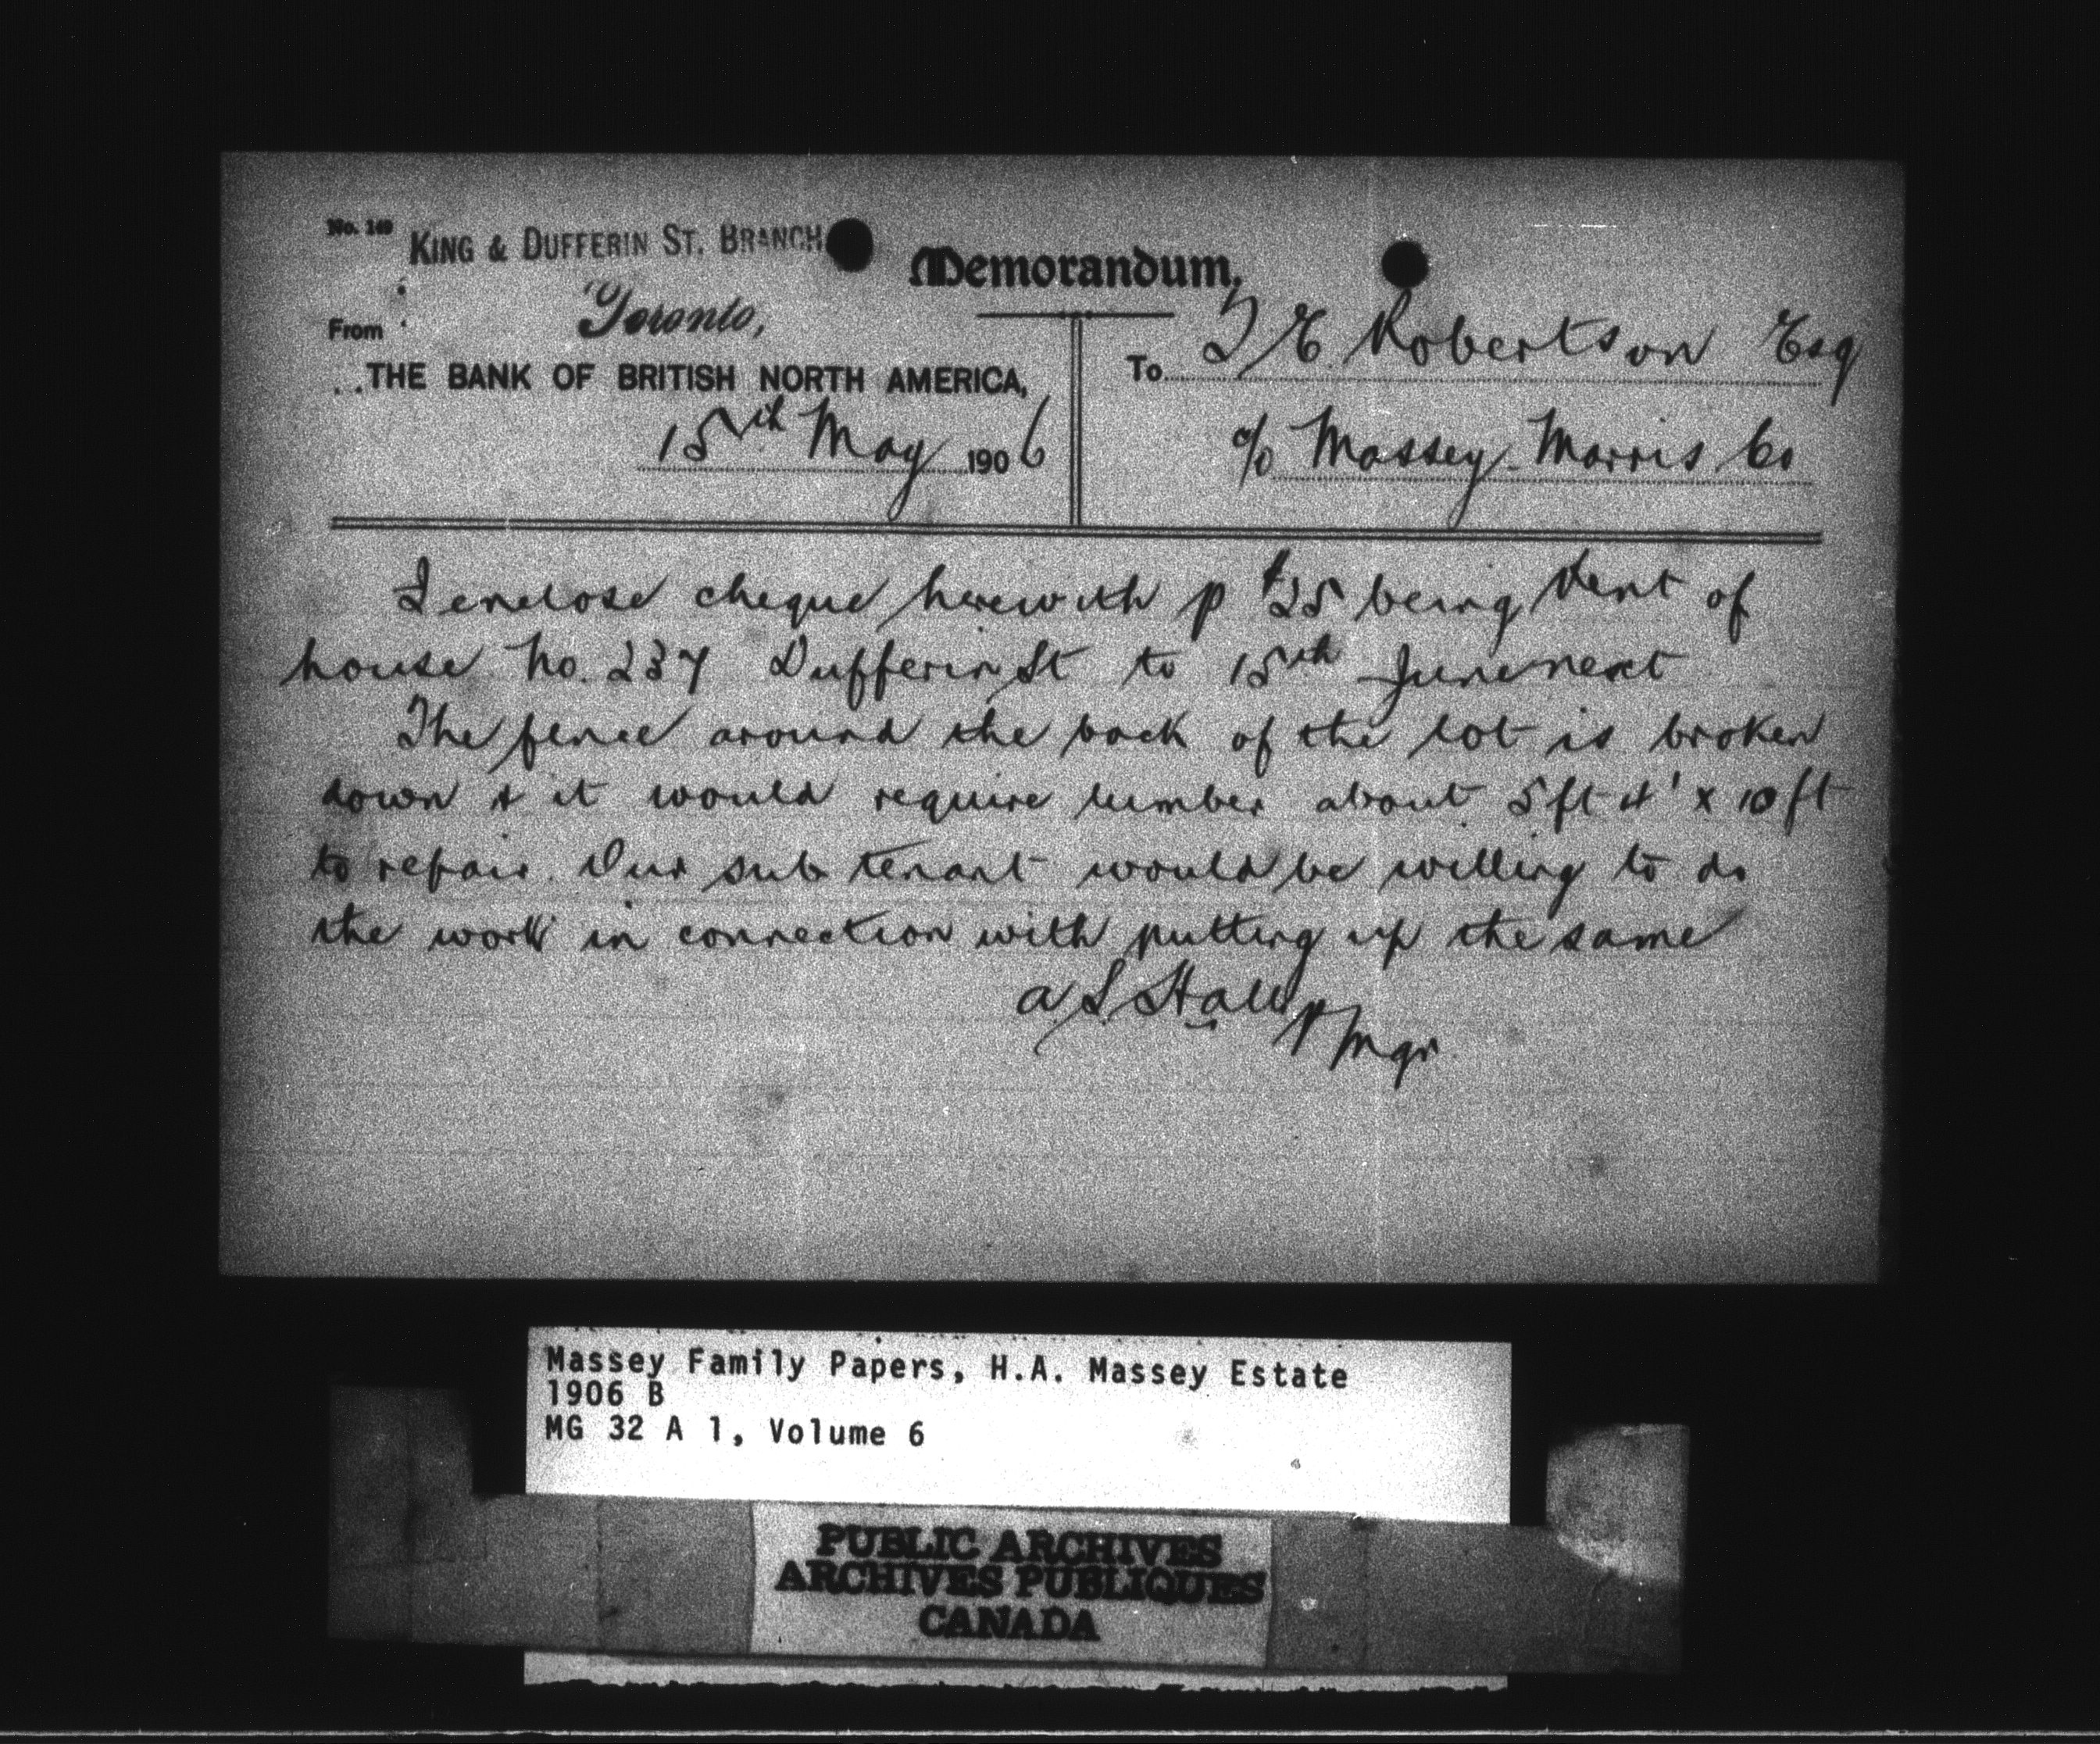 No. 149
KING & DUFFERIN ST. BRANCH
Memorandum.
From Toronto,
THE BANK OF BRITISH NORTH AMERICA,
15th May 1906
To T E Robertson Esq
c/o Massey Harris Co
I enclose cheque herewith p $25 being rent of
house No. 237 Dufferin St to 15th June next
The fence around the back of the lot is broken
down & it would require lumber about 5 ft 4' x 10 ft
to repair. Our sub tenant would be willing to do
the work in connection with putting up the same
A S Hall
p Mgr
Massey Family Papers, H.A. Massey Estate
1906 B
MG 32 A 1, Volume 6
PUBLIC ARCHIVES
ARCHIVES PUBLIQUES
CANADA